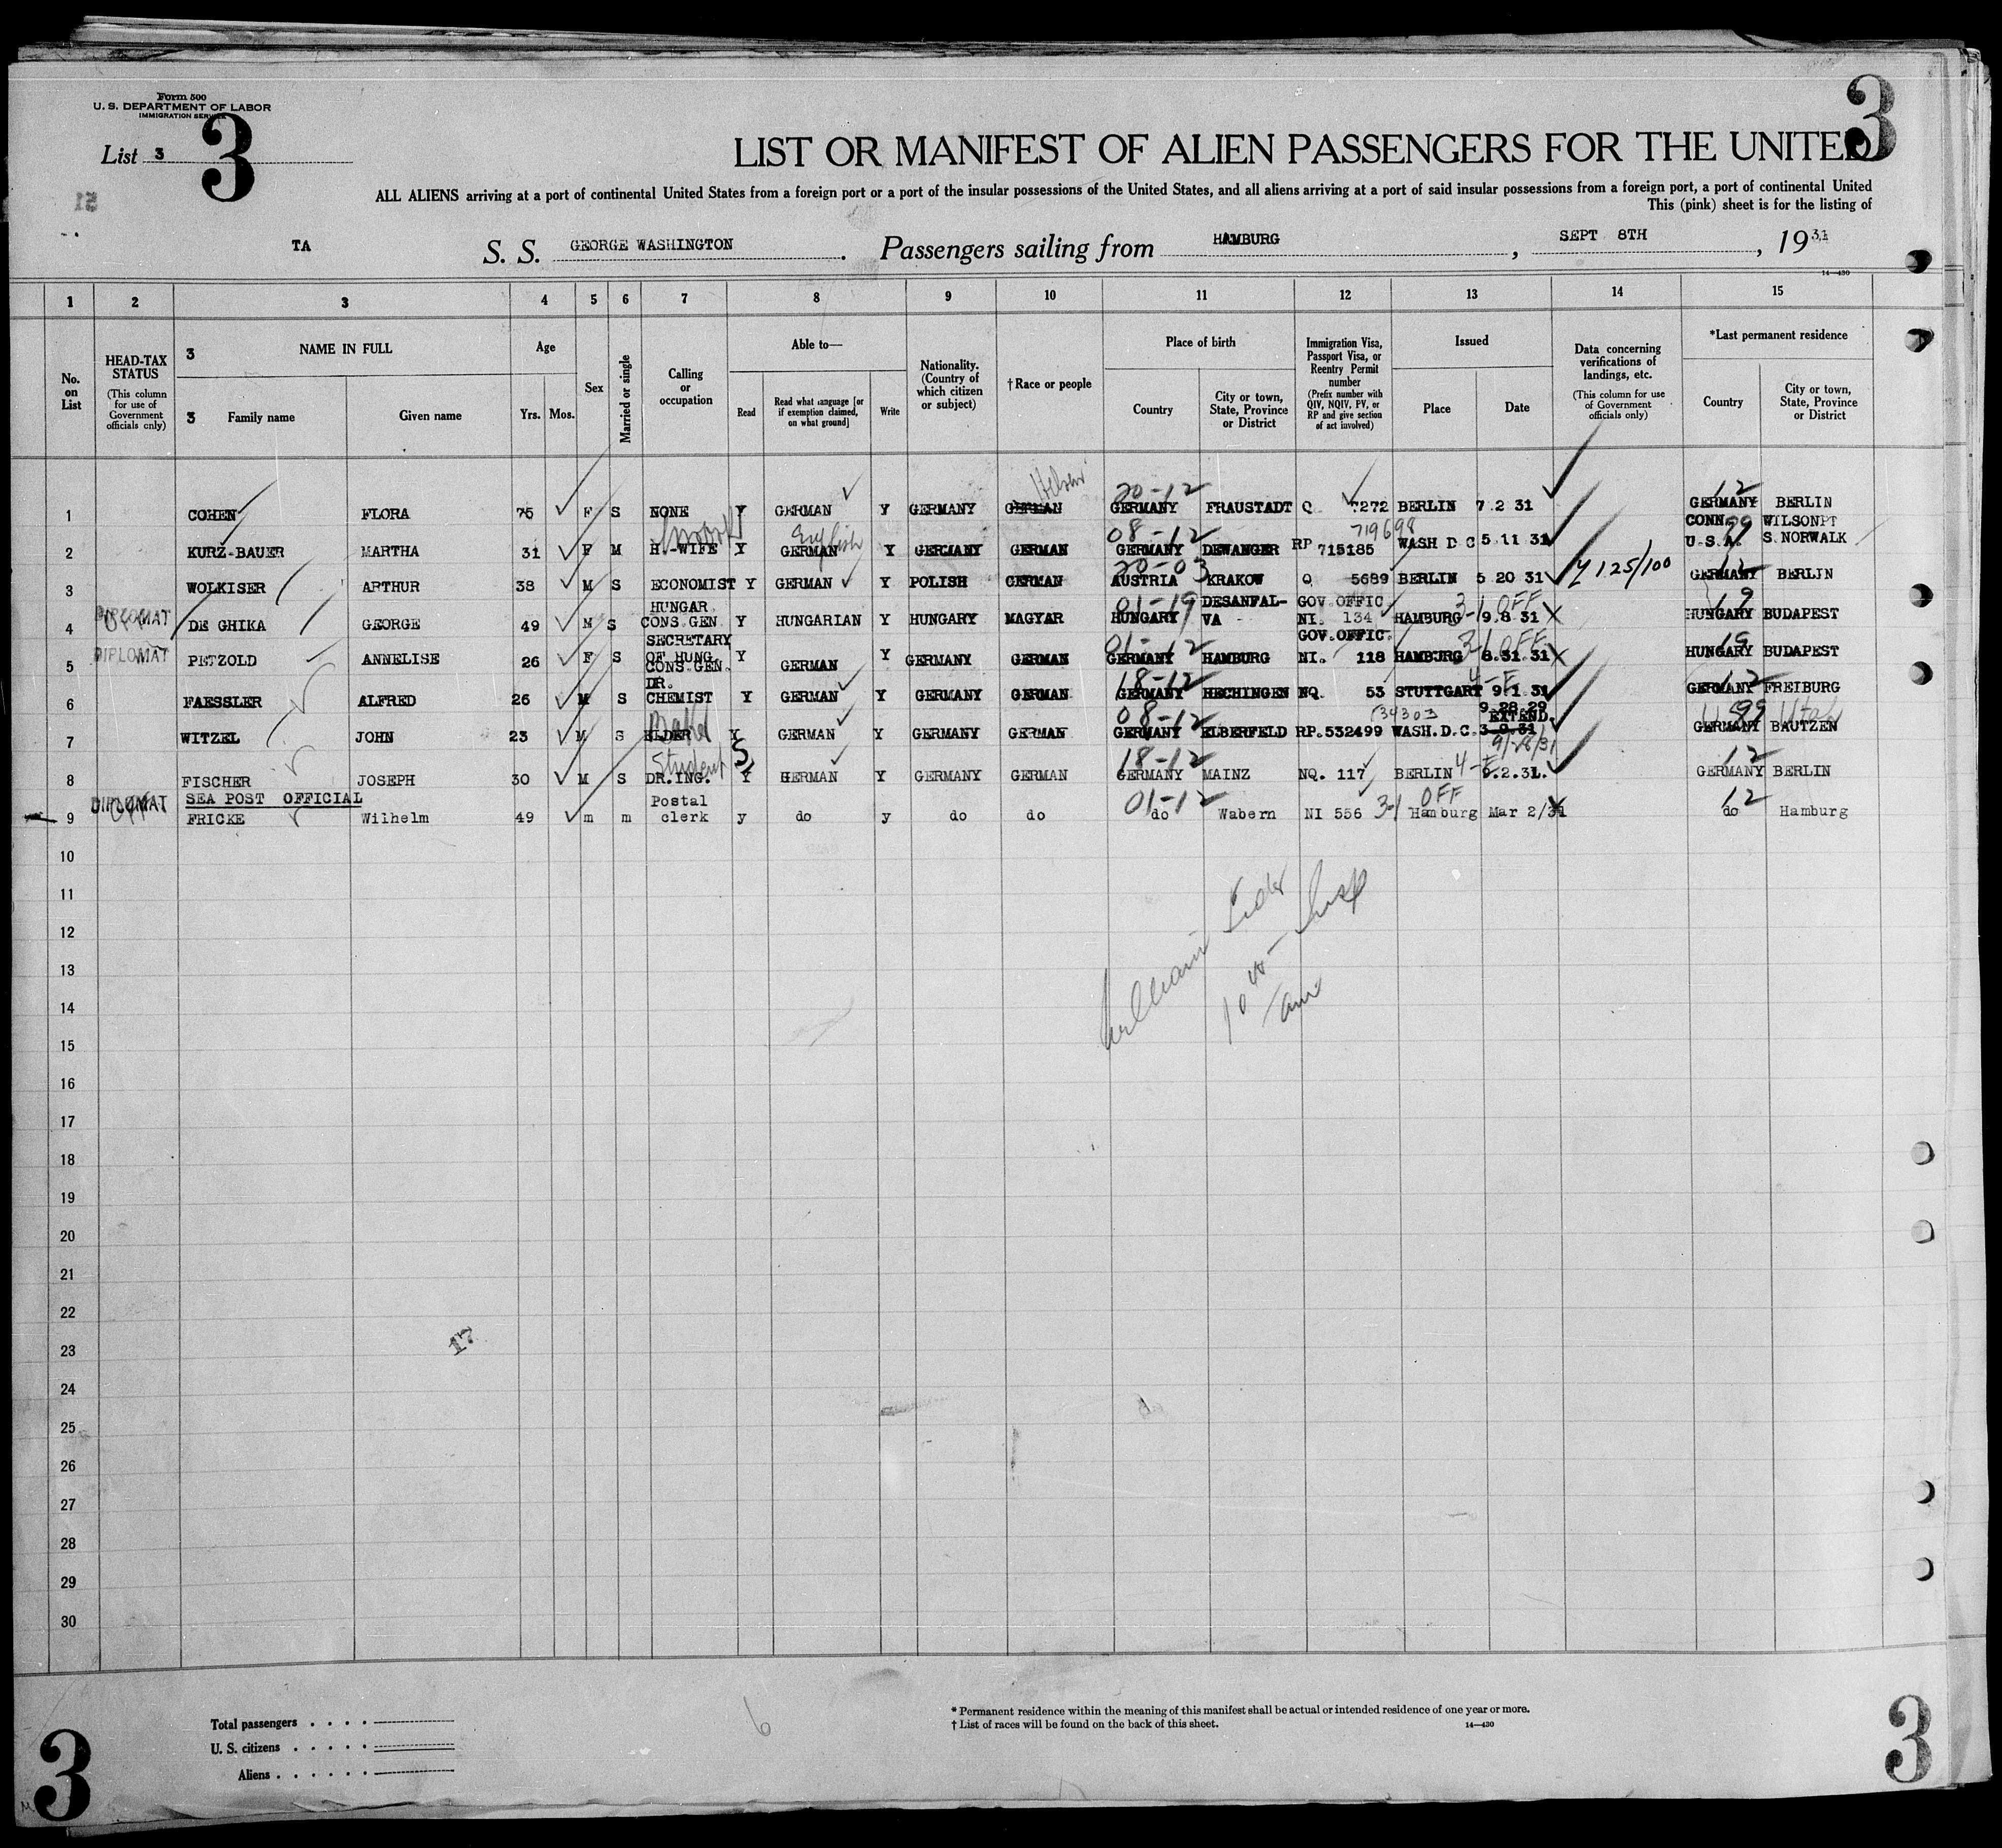 Form 500
U. S. DEPARTMENT OF LABOR
IMMIGRATION SERVICE
List 3
3
3
LIST OR MANIFEST OF ALIEN PASSENGERS FOR THE UNITED
ALL ALIENS arriving at a port of continental United States from a foreign port or a port of the insular possessions of the United States, and all aliens arriving at a port of said insular possessions from a foreign port, a port of continental United
This (pink) sheet is for the listing of
TA S. S. GEORGE WASHINGTON. Passengers sailing from HAMBURG, SEPT 8TH, 1931
14—430
1 2 3 4 5 6 7 8 9 10 11 12 13 14 15
No. on List
HEAD-TAX STATUS (This column for use of Government officials only)
3 NAME IN FULL
3 Family name Given name
Age Yrs. Mos.
Sex
Married or single
Calling or occupation
Able to— Read Read what language [or if exemption claimed, on what ground] Write
Nationality. (Country of which citizen or subject)
†Race or people
Place of birth Country City or town, State, Province or District
Immigration Visa, Passport Visa, or Reentry Permit number (Prefix number with QIV, NQIV, PV, or RP and give section of act involved)
Issued Place Date
Data concerning verifications of landings, etc. (This column for use of Government officials only)
*Last permanent residence Country City or town, State, Province or District
Hebrew 20-12 12
1 COHEN FLORA 75 F S NONE Y GERMAN Y GERMANY GERMAN GERMANY FRAUSTADT Q 7272 BERLIN 7 2 31 GERMANY BERLIN
English 08-12 719698 CONN. 99 WILSONPT
2 KURZ-BAUER MARTHA 31 F M H.-WIFE Y GERMAN Y GERMANY GERMAN GERMANY DEWANGER RP 715185 WASH D C 5 11 31 U.S.A. S.NORWALK
20-03 12
3 WOLKISER ARTHUR 38 M S ECONOMIST Y GERMAN Y POLISH GERMAN AUSTRIA KRAKOW Q 5689 BERLIN 5 20 31 125/100 GERMANY BERLIN
DIPLOMAT HUNGAR 01-19 DESANFAL- GOV OFFIC 3-1 OFF 19
4 DE GHIKA GEORGE 49 M S CONS GEN Y HUNGARIAN Y HUNGARY MAGYAR HUNGARY VA NI. 134 HAMBURG 9.8.31 HUNGARY BUDAPEST
DIPLOMAT SECRETARY 01-12 GOV.OFFIC. 3-1 OFF 19
5 PETZOLD ANNELISE 26 F S OF HUNG. CONS.GEN. Y GERMAN Y GERMANY GERMAN GERMANY HAMBURG NI. 118 HAMBURG 8.31.31 HUNGARY BUDAPEST
DR. 18-12 4-F 12
6 FAESSLER ALFRED 26 M S CHEMIST Y GERMAN Y GERMANY GERMAN GERMANY HECHINGEN NQ. 53 STUTTGART 9.1 31 GERMANY FREIBURG
08-12 34303 9.28.29 EXTEND. 99 Utah
7 WITZEL JOHN 23 M S ELDER Y GERMAN Y GERMANY GERMAN GERMANY ELBERFELD RP.532499 WASH.D.C. 3.9.31 GERMANY BAUTZEN
Student 18-12 4-F 9/28/31 12
8 FISCHER JOSEPH 30 M S DR.ING. Y GERMAN Y GERMANY GERMAN GERMANY MAINZ NQ. 117 BERLIN 9.2.31. GERMANY BERLIN
DIPLOMAT SEA POST OFFICIAL Postal 01-12 OFF 12
9 FRICKE Wilhelm 49 m m clerk y do y do do do Wabern NI 556 3-1 Hamburg Mar 2/31 do Hamburg
10
11
12
13
14
15
16
17
18
19
20
21
22
23
24
25
26
27
28
29
30
William
10
am
17
6
Total passengers
U. S. citizens
Aliens
* Permanent residence within the meaning of this manifest shall be actual or intended residence of one year or more.
† List of races will be found on the back of this sheet. 14—430
3
3